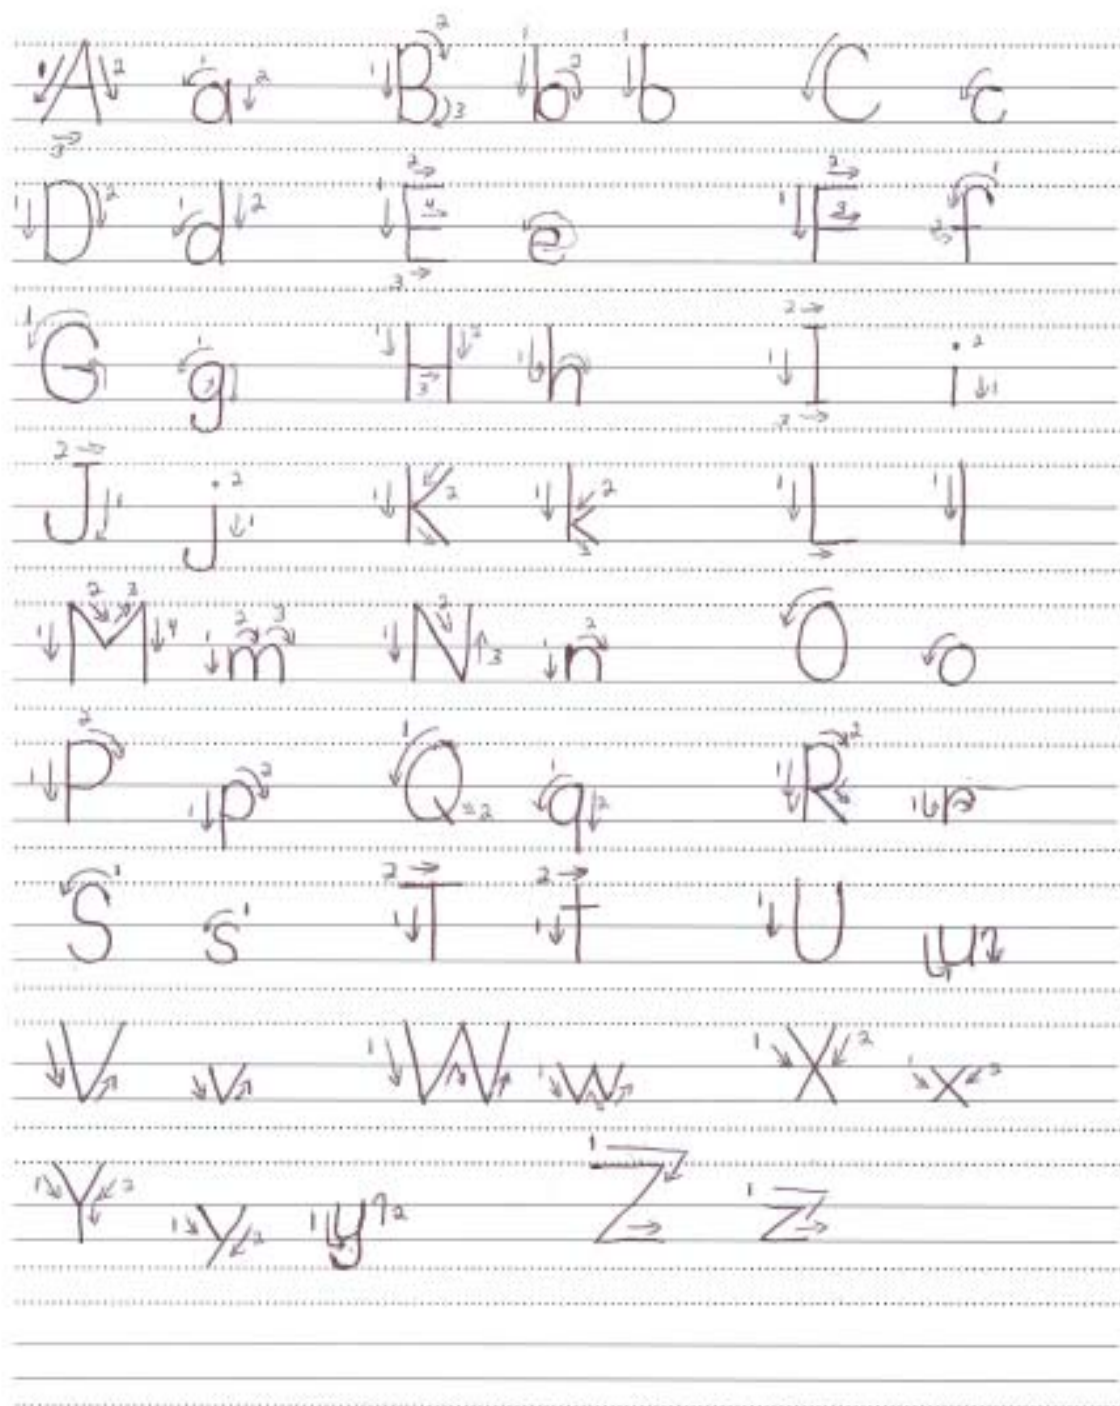 A a B b b C c
D d E e F f
G g H h I i
J j K k L l
M m N n O o
P p Q q R r
S s T t U u
V v W w X x
Y y y Z z